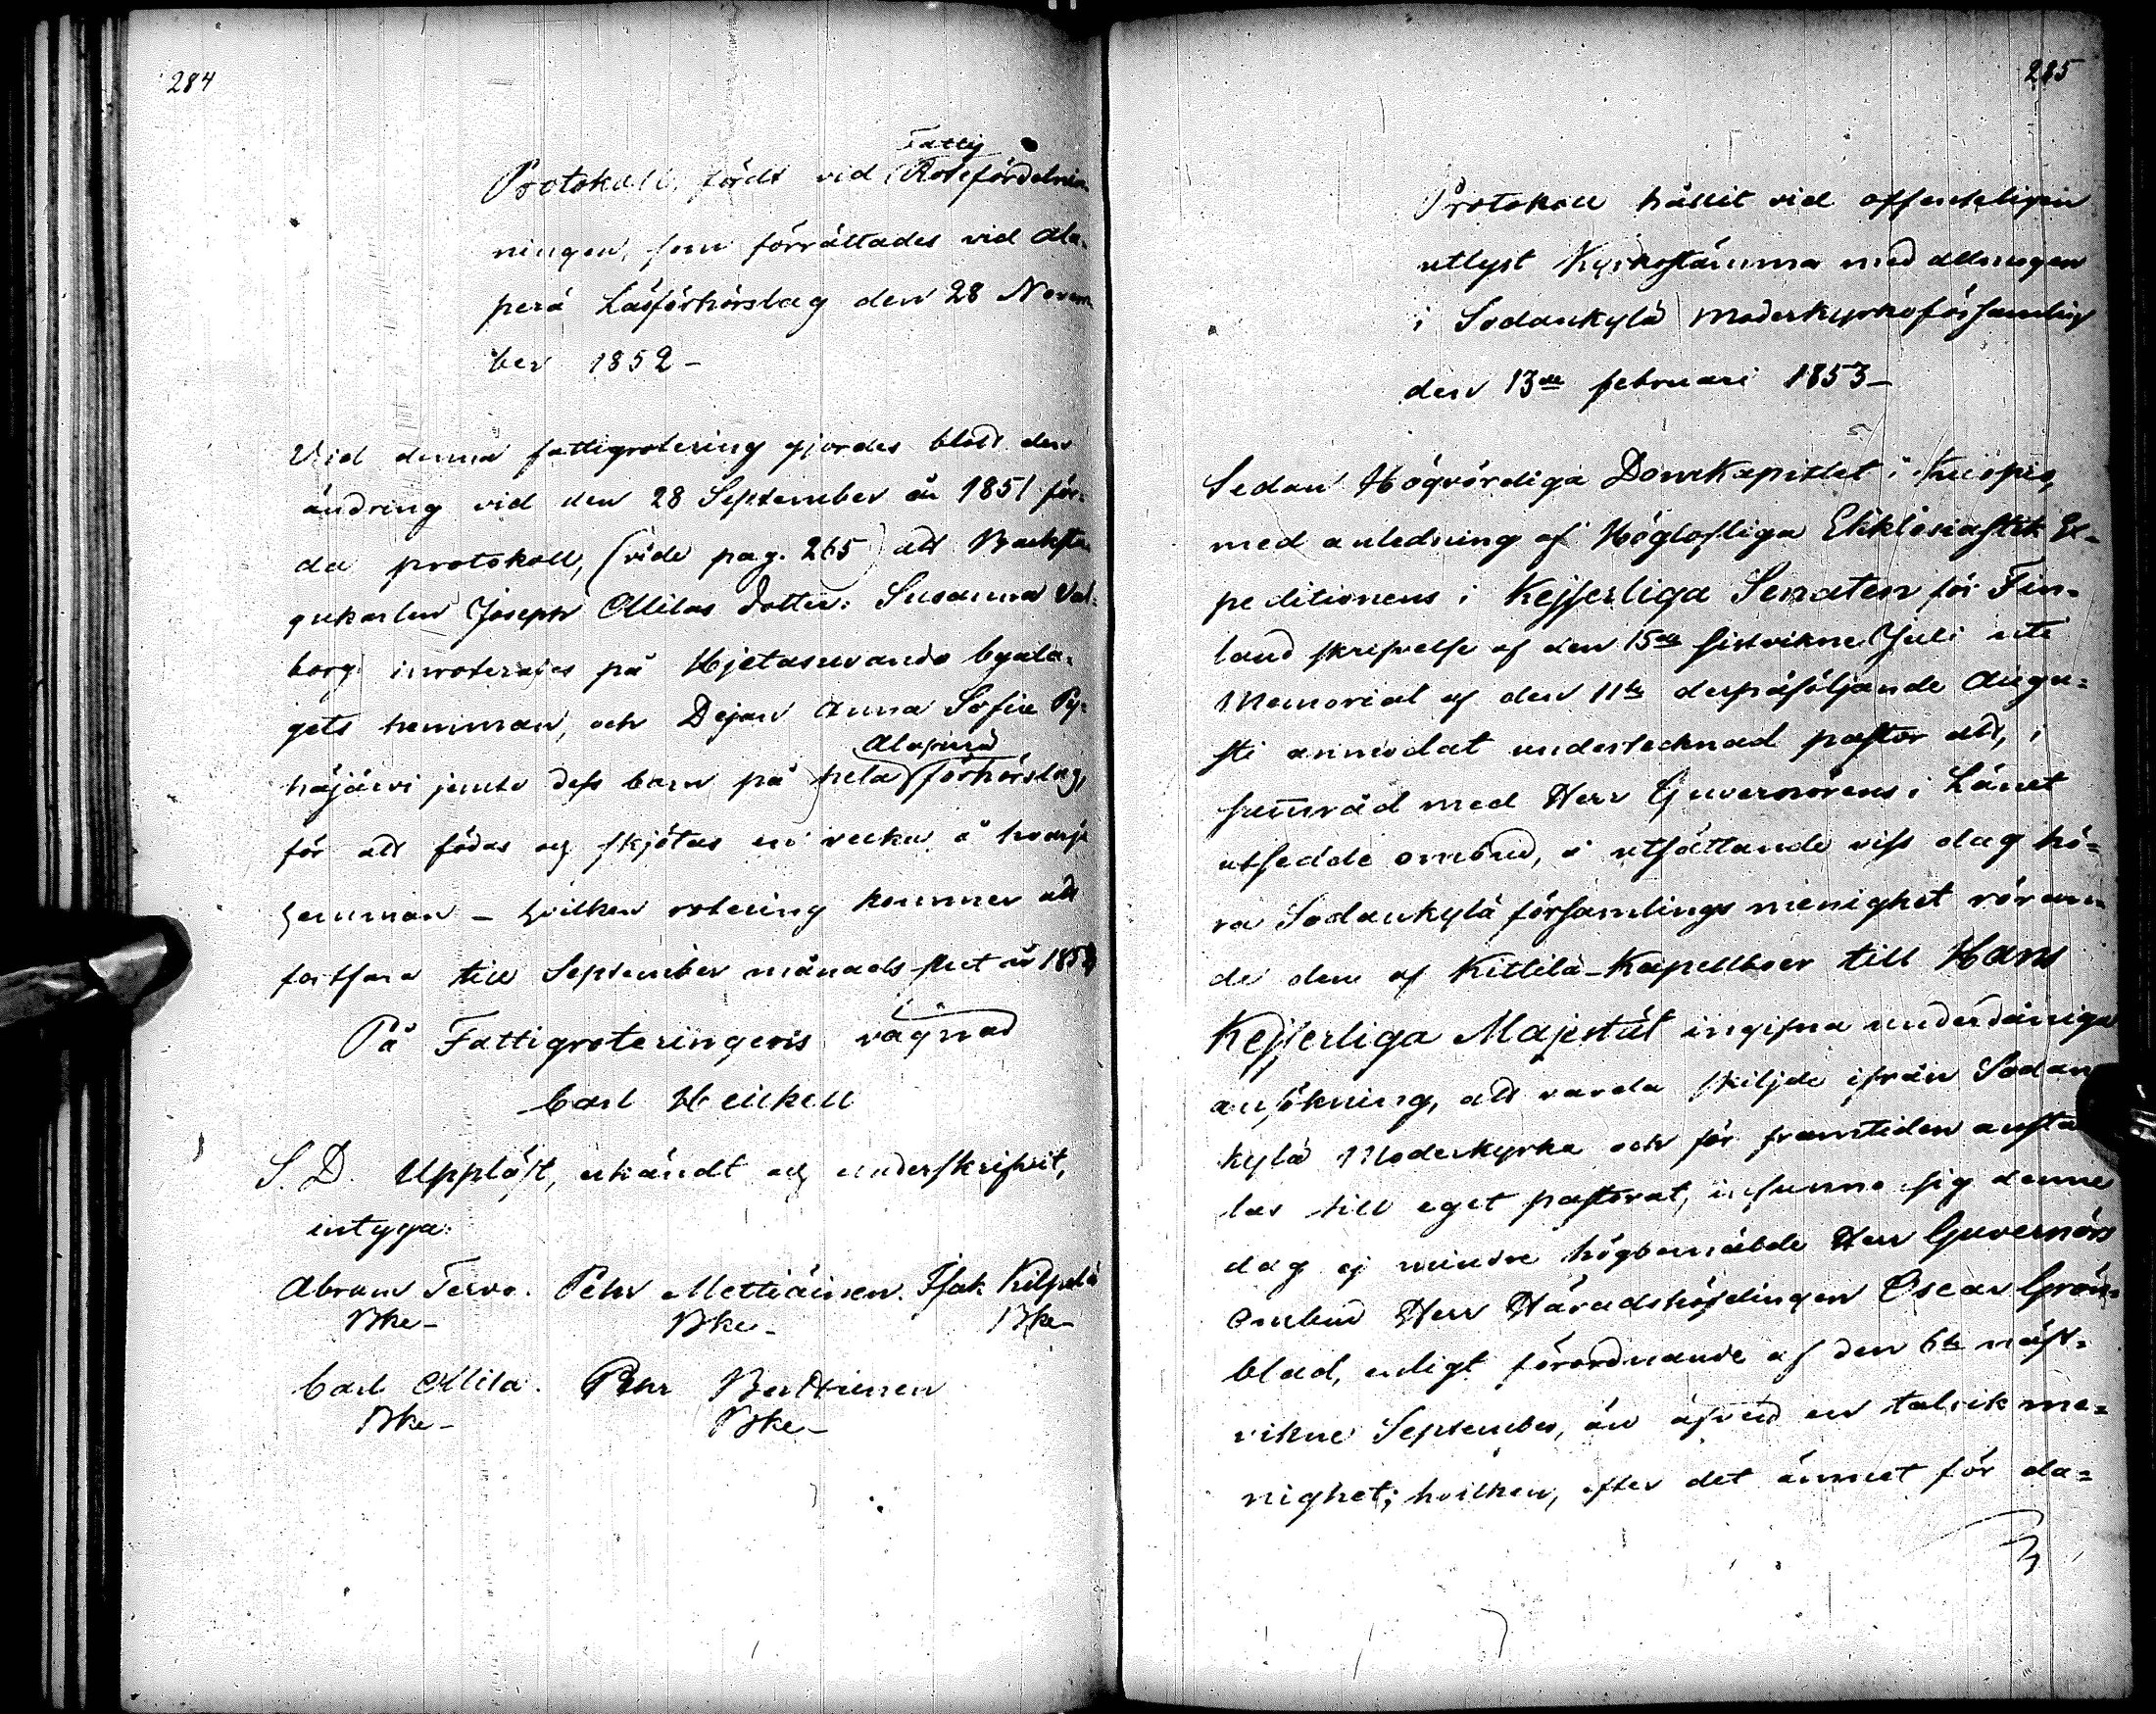 284
Fattig
Protokoll, fördt vid Rotefördelnin-
ningen, som förrättades vid Ala-
perä Läsförhörslag den 28 Novem-
ber 1852 -
Vid denna fattigrotering gjordes blott den
ändring vid den 28 September år 1851 för-
da protokoll, (vide pag. 265) att Backstu-
gukarlen Joseph Ollilas dotter: Susanna Val-
borg inroterades på Hjetasuvando byala-
gets hemman, och Dejan Anna Sofia Py-
Alaperä
häjärvi jemte dess barn på hela förhörslag,
för att födas og skjötas en vecka å hvarje
hemman - hvilken rotering kommer att
fortfara till September månads slut år 185
På Fattigroteringens vägnar
Carl Heickell
S. D. Uppläst, erkändt og underskrifvit,
intyga:
Abram Tervo. Pehr Mettiäinen. Isak Kilpelä
Bke- Bke- Bke-
Carl Ollila. Pehr Berttunen
Bke- Bke-
285
Protokoll hållit vid offenteligen
utlyst Kyrkostämma med allmogen
i Sodankylä Moderkyrkoförsamling
den 13de februari 1853-
Sedan Högvördiga Domkapitlet i Kuopio,
med anledning af Höglofliga Ekklesiastik Ex-
peditionens i Kejserliga Senaten för Fin-
land skrifvelse af den 15de sistvikne Juli uti
Memorial af den 11te derpåföljande Augu-
sti anmodat undertecknad pastor att, i
samråd med Herr Guvernörens i Länet
utsedde ombud, å utsättande viss dag hö-
ra Sodankylä församlings menighet röran-
de den af Kittilä-Kapellboer till Hans
Kejserliga Majestät ingifna underdåniga
ansökning, att varda skiljde ifrån Sodan
kylä Moderkyrka och för framtiden anstä
las till eget pastorat, infunno sig denne
dag ej mindre högbemälde Herr Guvernörs
Ombud Herr Häradshöfdingen Oscar Grön-
blad, enligt förordnande af den 6te näst-
vikne September, än äfven en talrik me-
nighet; hvilken, efter det ämnet för da-